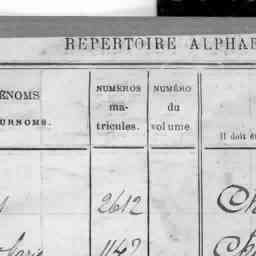 REPERTOIRE ALPHAB
ÉNOMS
URNOMS.
NUMÉROS
ma-
tricules.
NUMÉRO
du
volume
Il doit êt
2612
Ch
1142